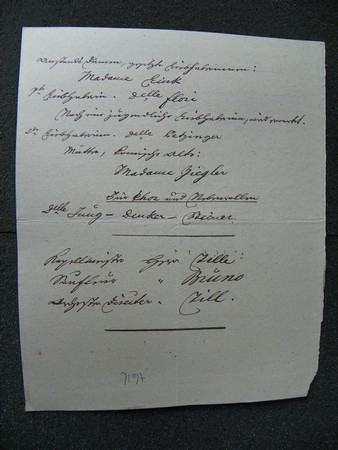 Anstands Damen, gesetzte Liebhaberinnen:
Madame Linck
1te Liebhaberin. Delle Flori
Noch eine jugendliche Liebhaberin, wird erwartet.
2te Liebhaberin. Delle Letzinger
Mütter, komische Alte:
Madame Ziegler
Für Chor und Nebenrollen
Delle Jung - Denker - Steiner
Kapellmeister Herr Zelle:
Souffleur " Bruno
Orchester Director " Zill.